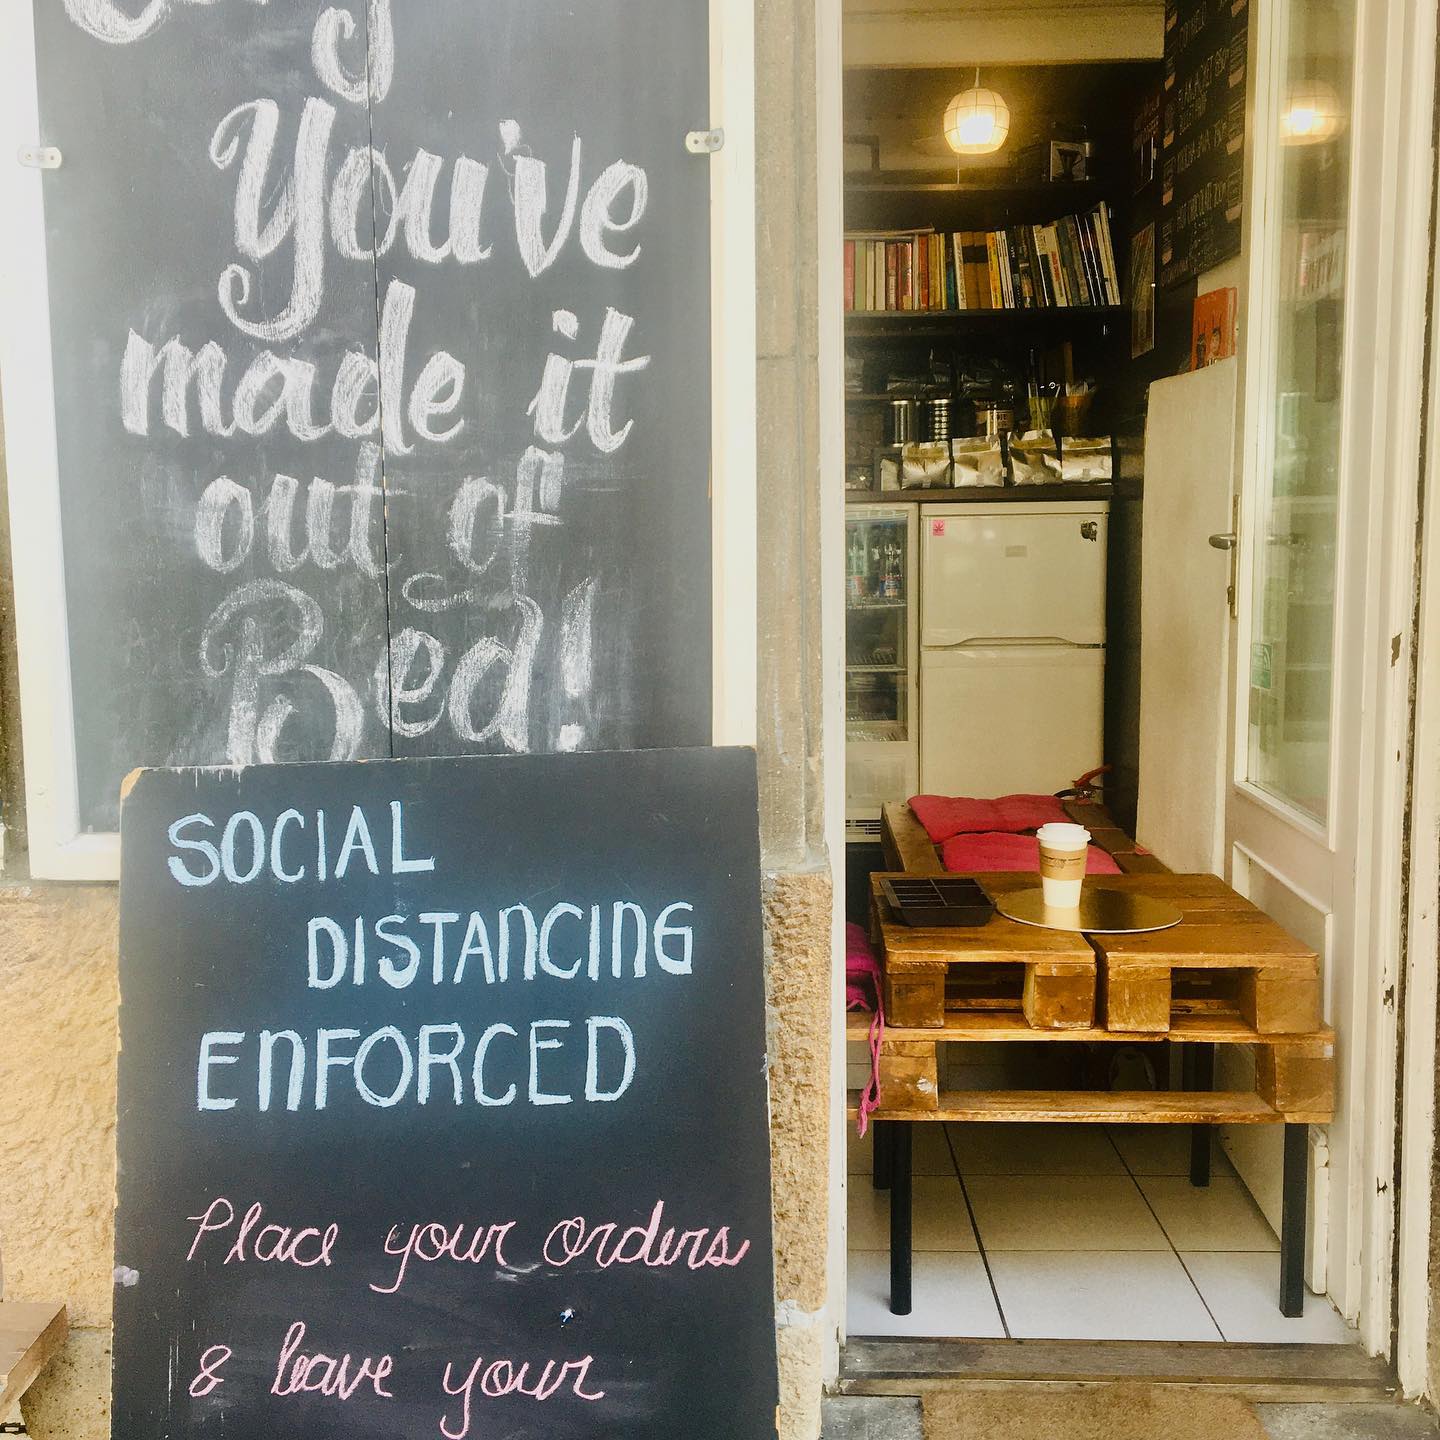 You've
made it
out of
Bed!
SOCIAL
DISTANCING
ENFORCED
Place your orders
& leave your